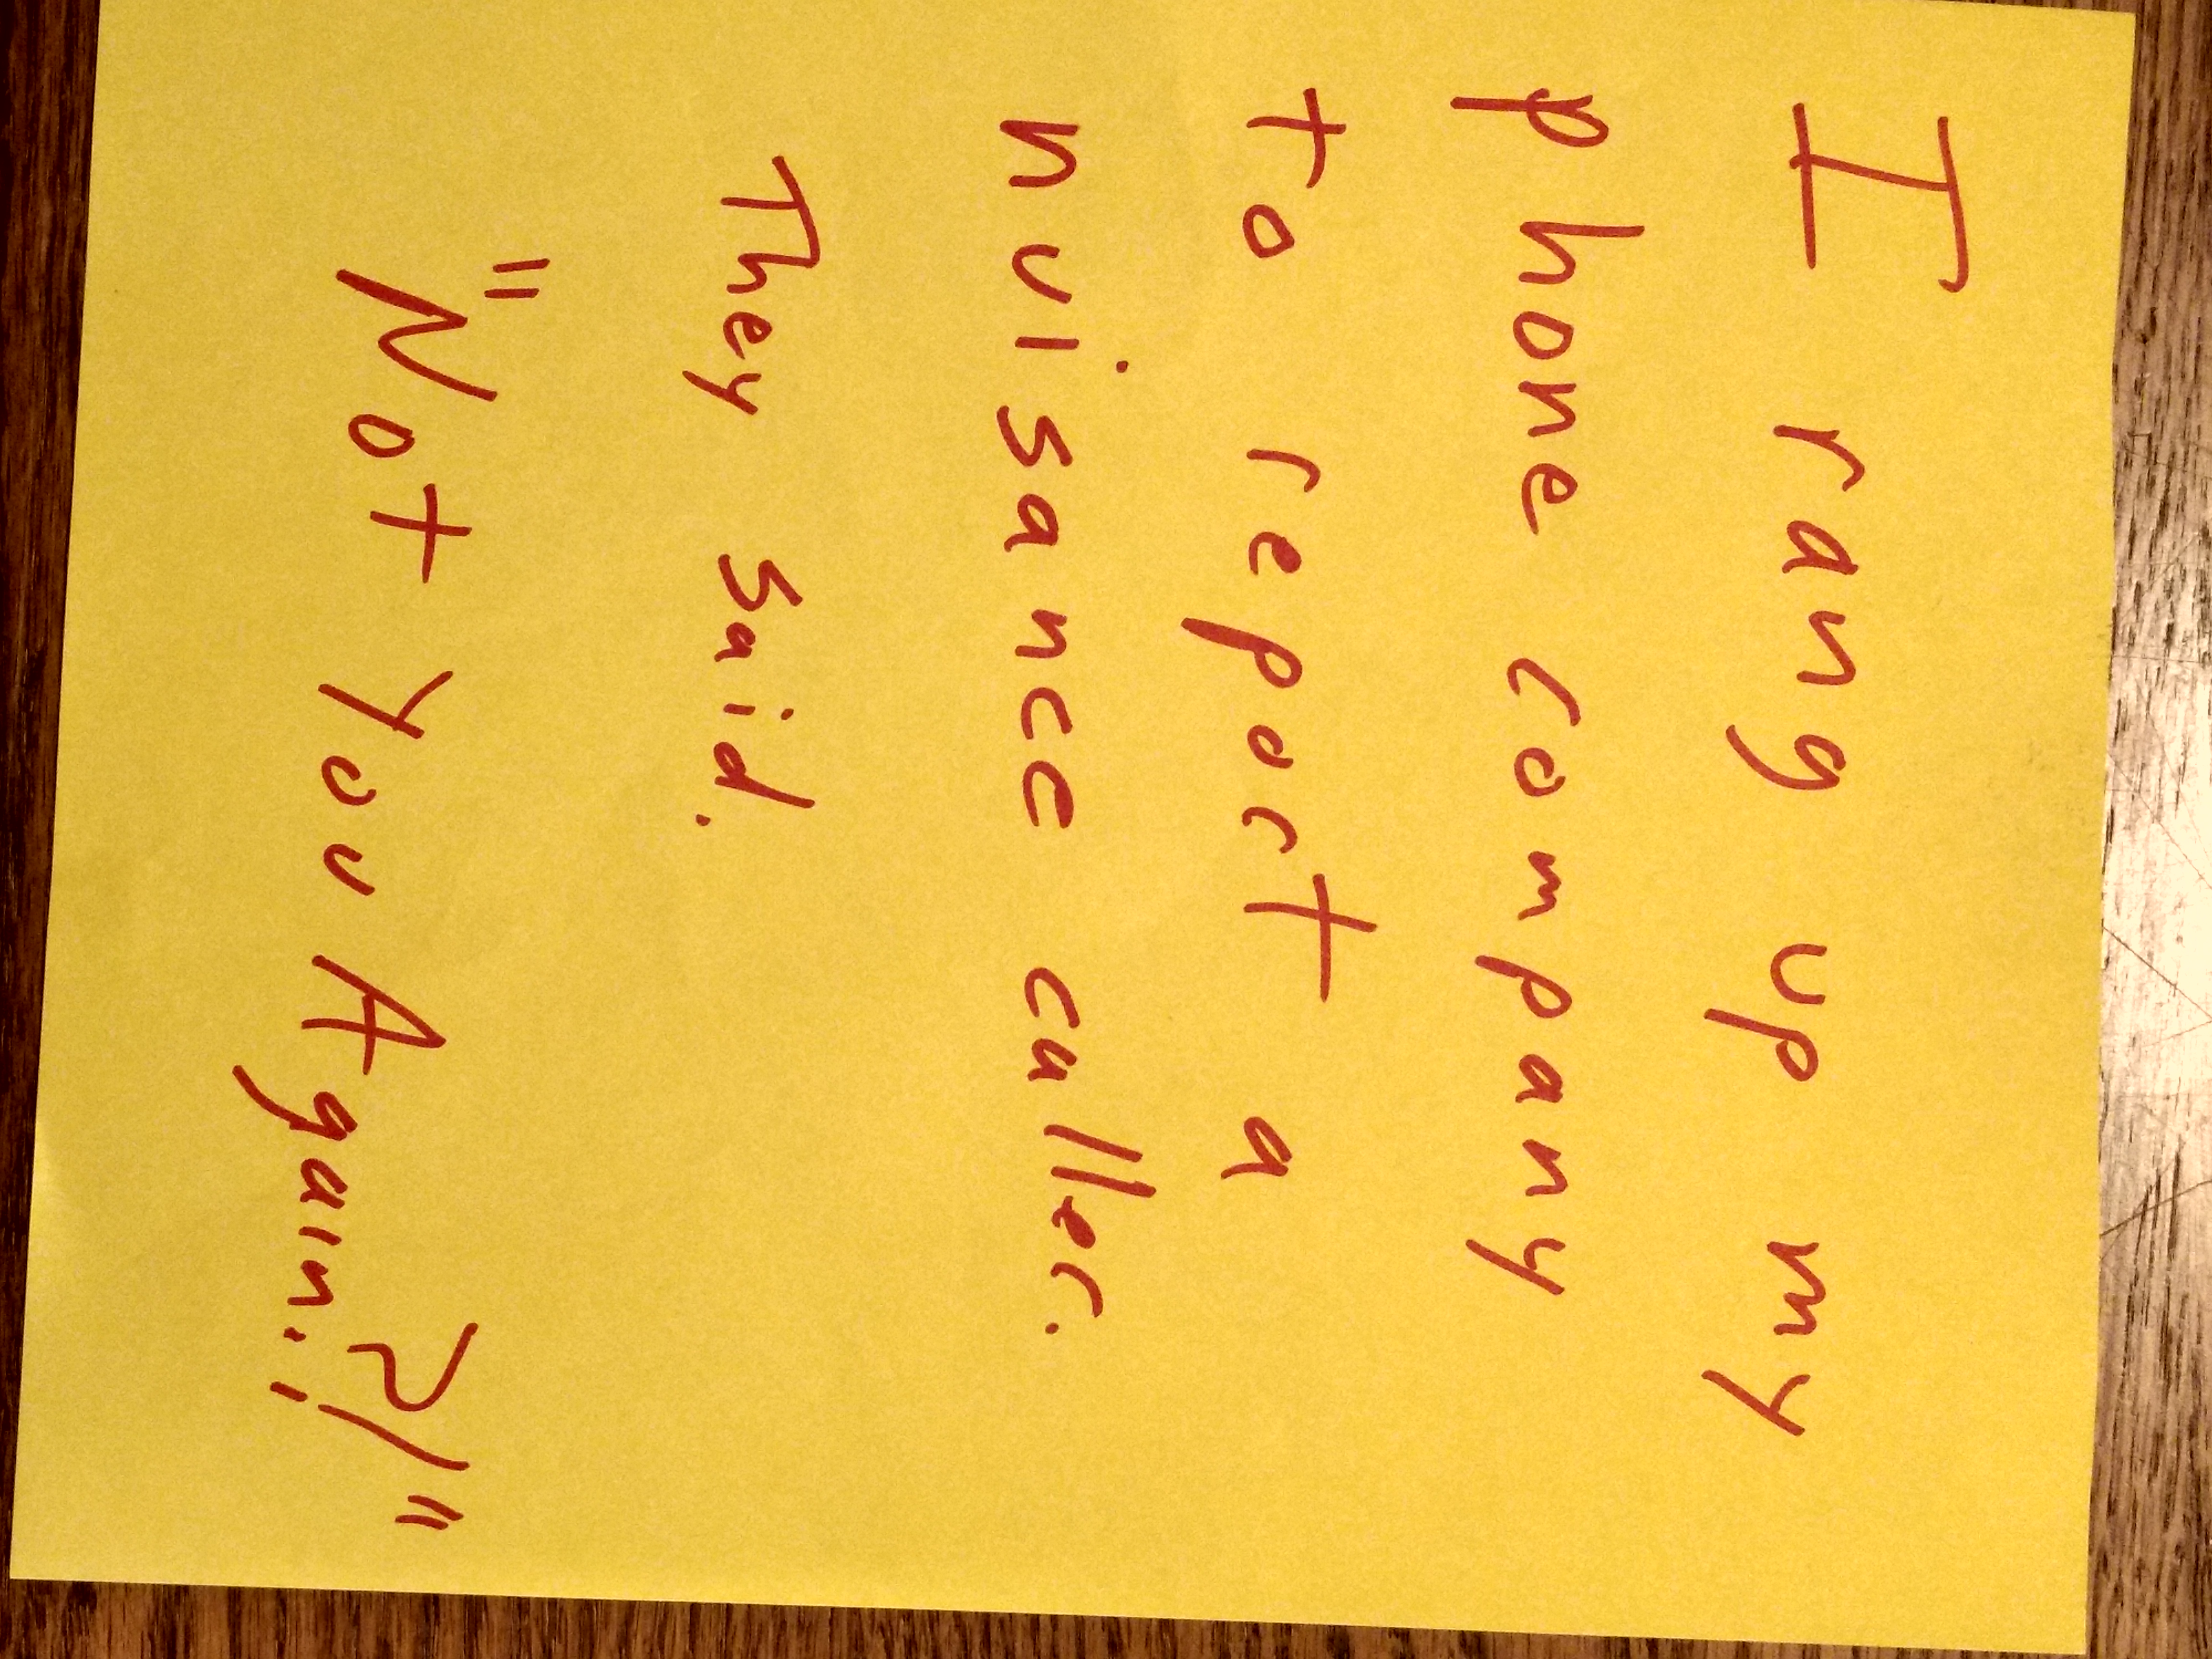 I rang up my
phone company
to report a
nuisance caller.
They said.
"Not You Again?!"